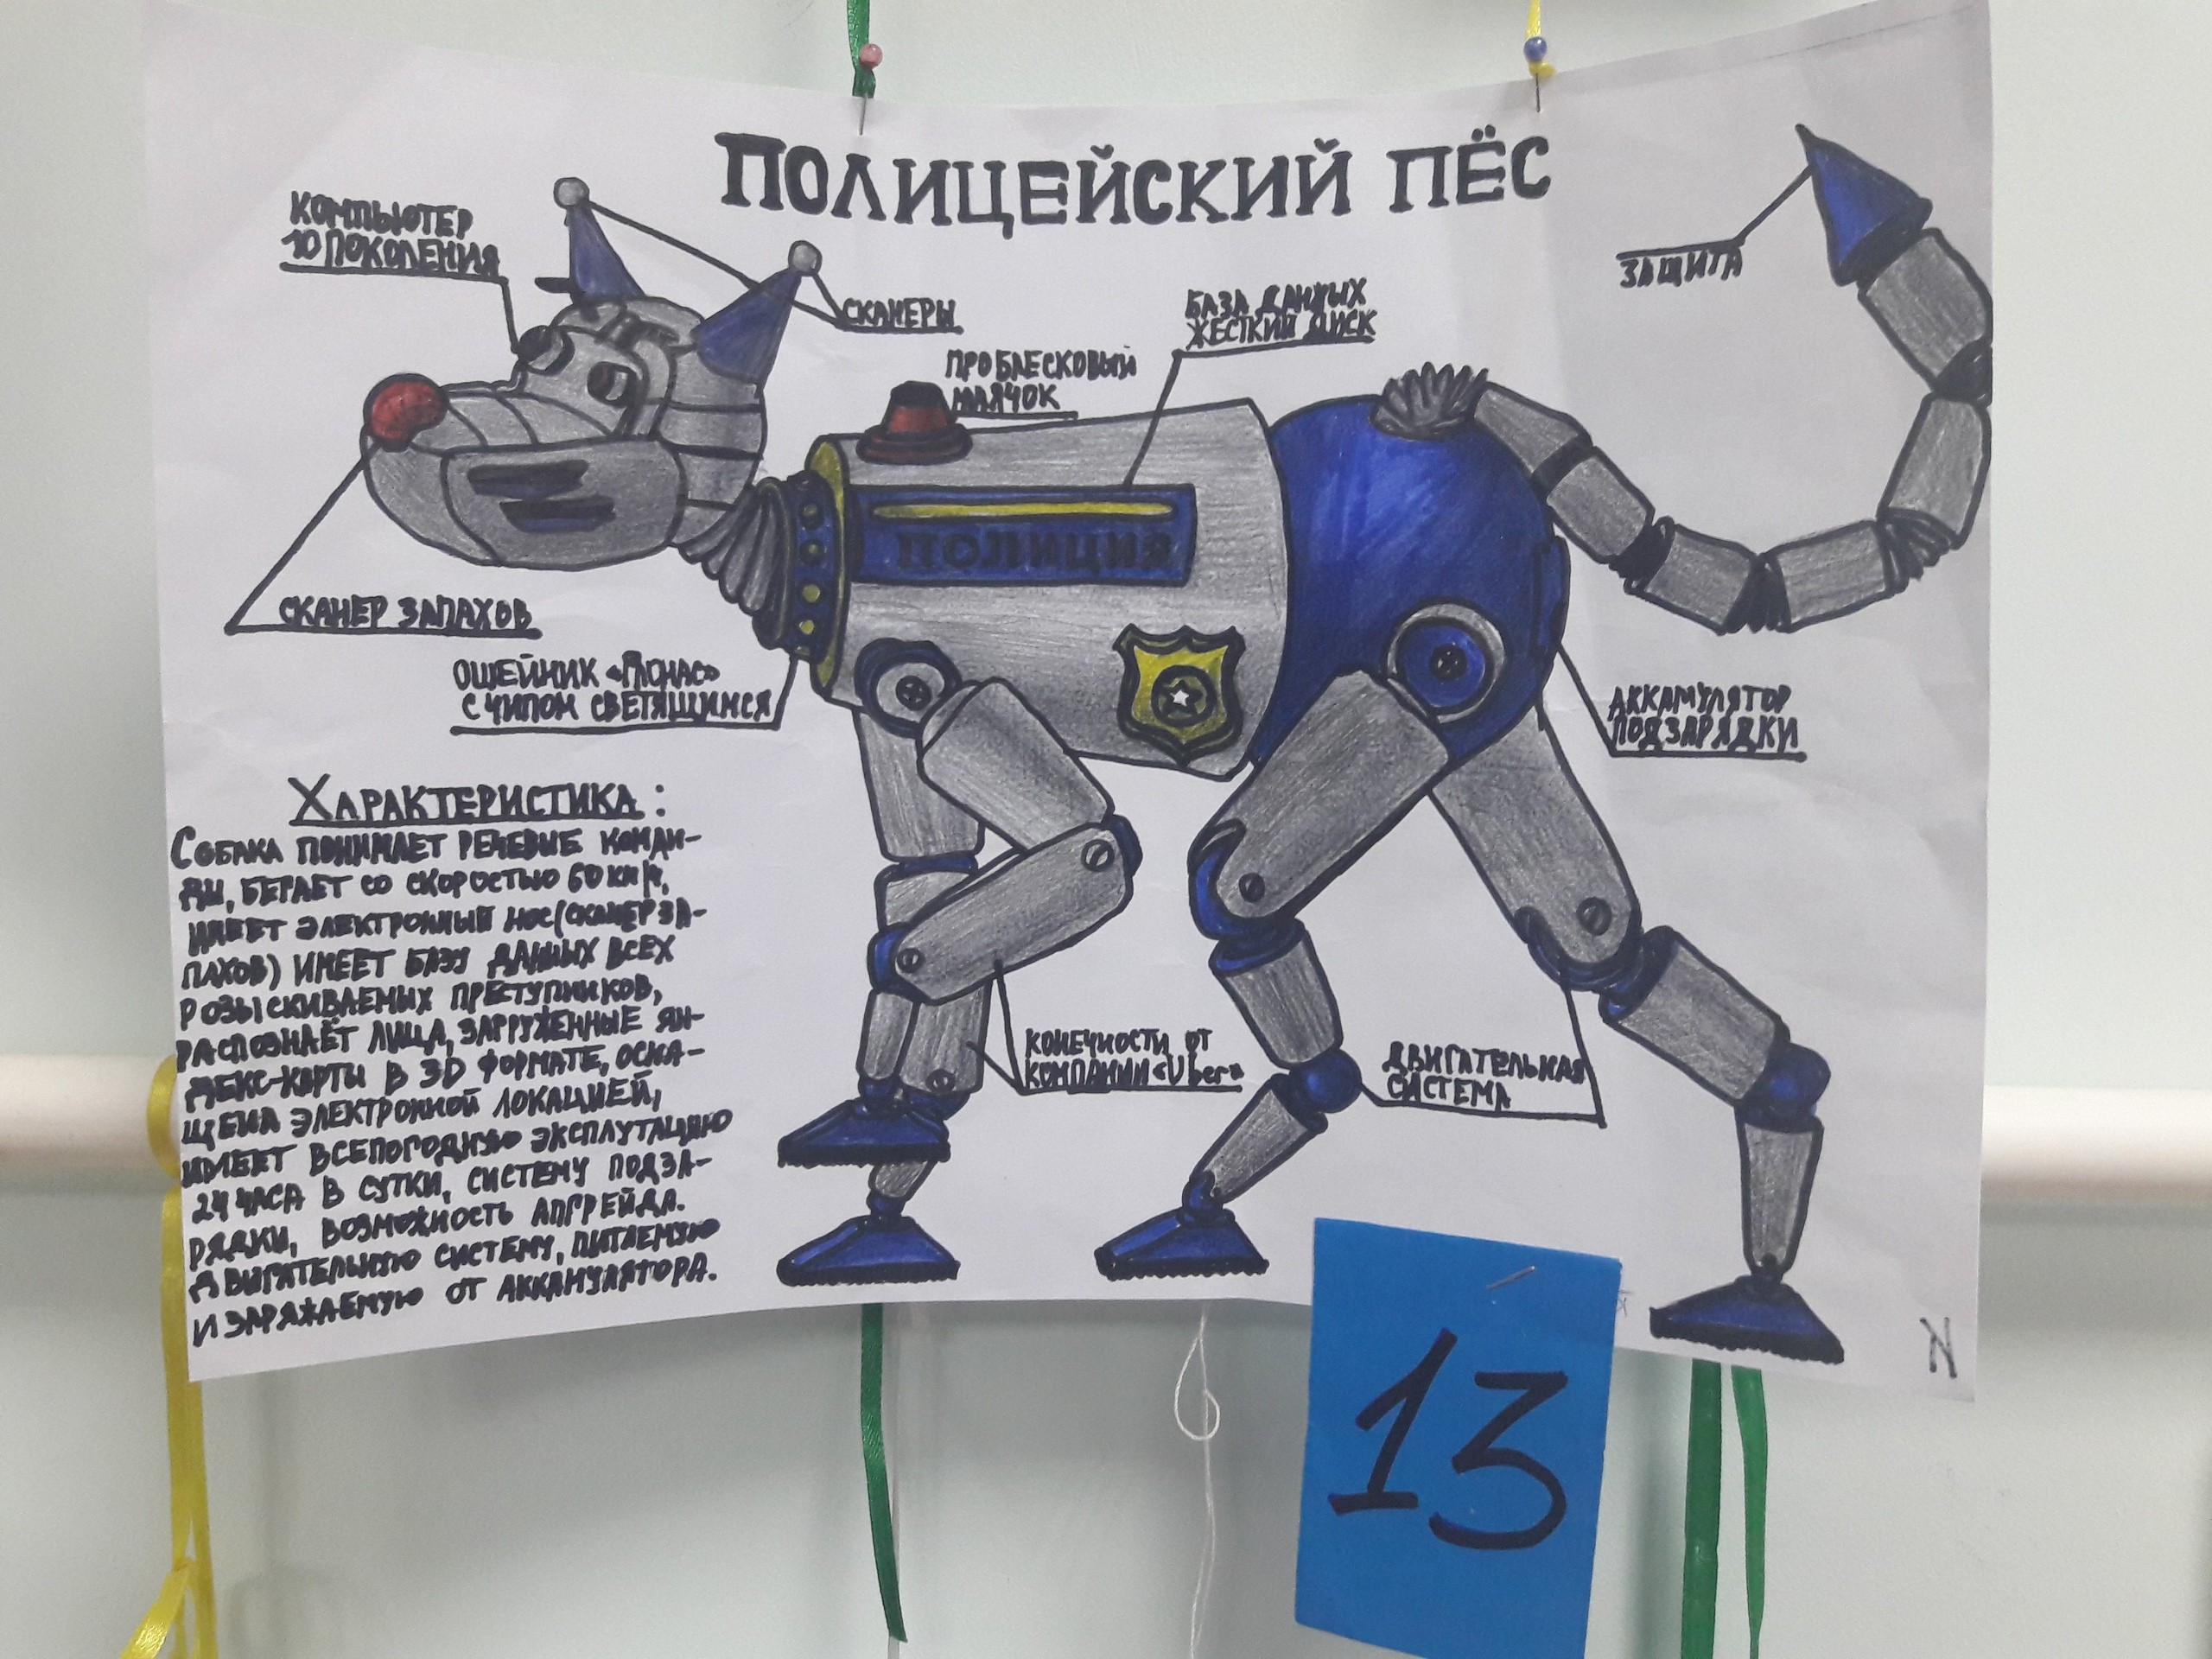 ПОЛИЦЕЙСКИЙ ПЁС
КОМПЬЮТЕР
10 ПОКОЛЕНИЯ
СКАНЕРЫ
ПРОБЛЕСКОВЫЙ
МАЯЧОК
БАЗА ДАННЫХ
ЖЕСТКИЙ ДИСК
ЗАЩИТА
ПОЛИЦИЯ
СКАНЕР ЗАПАХОВ
ОШЕЙНИК «ГЛОНАС»
С ЧИПОМ СВЕТЯЩИМСЯ
АККАМУЛЯТОР
ПОДЗАРЯДКИ
ХАРАКТЕРИСТИКА:
СОБАКА ПОНИМАЕТ РЕЧЕВЫЕ КОМАН-
ДЫ, БЕГАЕТ СО СКОРОСТЬЮ 60 КМ/Ч,
ИМЕЕТ ЭЛЕКТРОННЫЙ НОС (СКАНЕР ЗА-
ПАХОВ) ИМЕЕТ БАЗУ ДАННЫХ ВСЕХ
РОЗЫСКИВАЕМЫХ ПРЕСТУПНИКОВ,
РАСПОЗНАЁТ ЛИЦА, ЗАГРУЖЕННЫЕ ЯН-
ДЕКС-КАРТЫ В 3D ФОРМАТЕ, ОСНА-
ЩЕНА ЭЛЕКТРОННОЙ ЛОКАЦИЕЙ,
ИМЕЕТ ВСЕПОГОДНУЮ ЭКСПЛУТАЦИЮ
24 ЧАСА В СУТКИ, СИСТЕМУ ПОДЗА-
РЯДКИ, ВОЗМОЖНОСТЬ АПГРЕЙДА.
ДВИГАТЕЛЬНУЮ СИСТЕМУ, ПИТАЕМУЮ
И ЗАРЯЖАЕМУЮ ОТ АККАМУЛЯТОРА.
КОНЕЧНОСТИ ОТ
КОМПАНИИ «Uber»
ДВИГАТЕЛЬНАЯ
СИСТЕМА
N
13